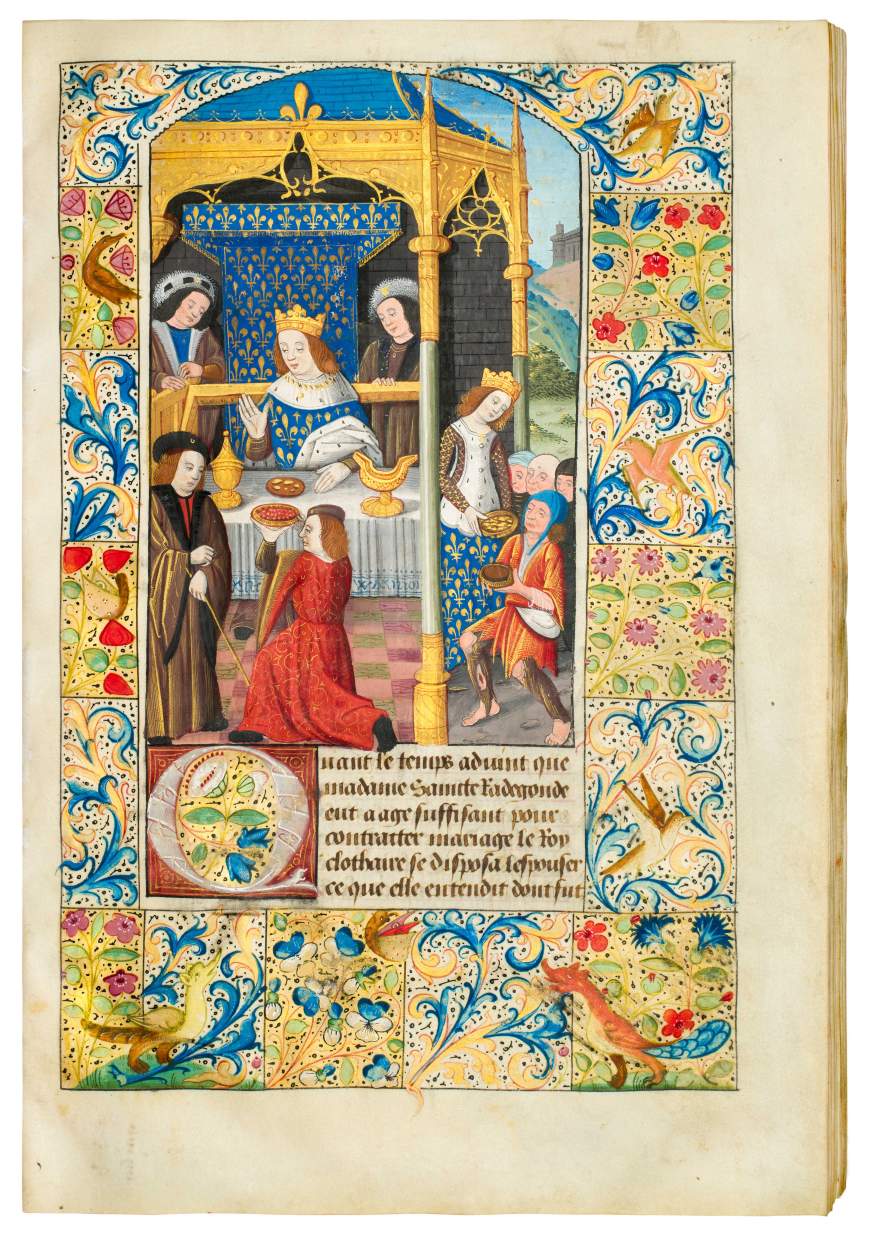 Quant le temps aduint que
madame Saincte Radegonde
eut aage suffisant pour
contratter mariage le Roy
clothaire se disposa lespouser
ce que elle entendit dont fut